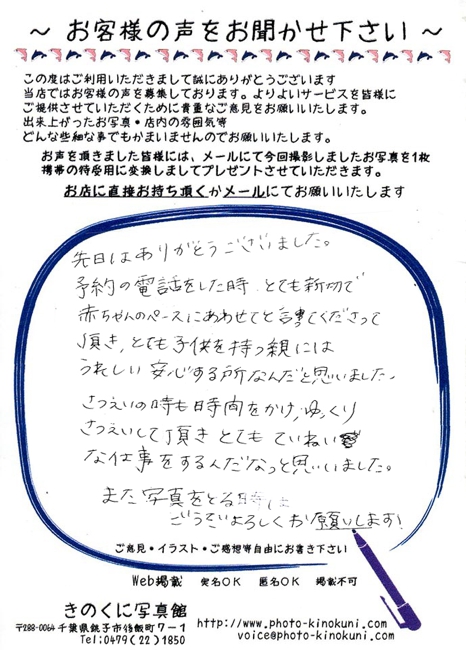 ～ お客様の声をお聞かせ下さい ～
この度はご利用いただきまして誠にありがとうございます
当店ではお客様の声を募集しております。よりよいサービスを皆様に
ご提供させていただくために貴重なご意見をお願いいたします。
出来上がったお写真・店内の雰囲気等
どんな些細な事でもかまいませんのでお願いいたします。
お声を頂きました皆様には、メールにて今回撮影しましたお写真を1枚
携帯の待受用に変換しましてプレゼントさせていただきます。
お店に直接お持ち頂くかメールにてお願いいたします
先日はありがとうございました。
予約の電話をした時、とても親切で
赤ちゃんのペースにあわせてと言ってくださって
頂き、とても子供を持つ親には
うれしい 安心する所なんだと思いました。
さつえいの時も時間をかけ、ゆっくり
さつえいして頂き とても ていねい
な仕事をするんだなっと思いました。
また 写真をとる時は
どうぞよろしくお願いします!
ご意見・イラスト・ご感想等自由にお書き下さい
Web掲載 実名OK 匿名OK 掲載不可
きのくに写真館
〒288-0064 千葉県銚子市後飯町7-1
Tel:0479(22)1850
http://www.photo-kinokuni.com/
voice@photo-kinokuni.com